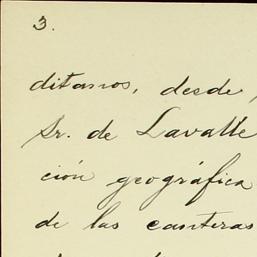 3.
ditamos, desde,
Sr. de Lavalle
ción geográfica
de las canteras